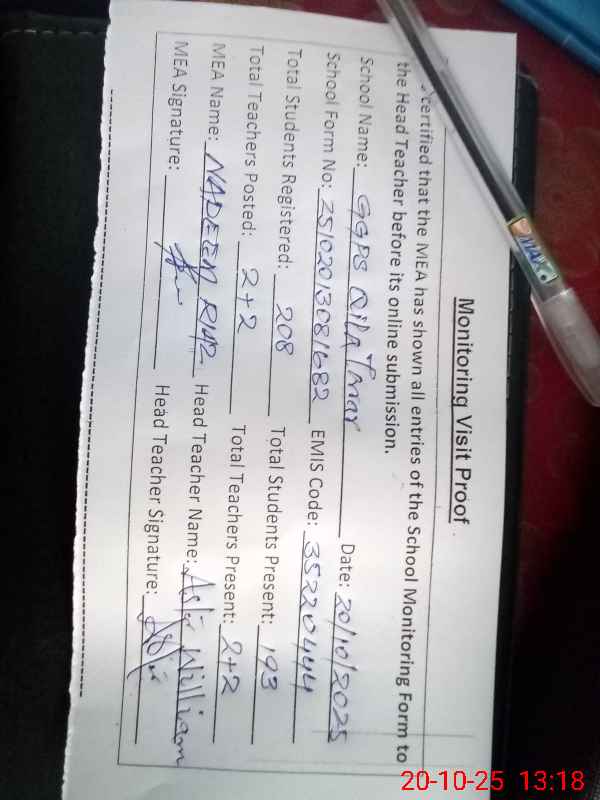 Monitoring Visit Proof
certified that the MEA has shown all entries of the School Monitoring Form to
the Head Teacher before its online submission.
School Name: GGPS Qila Date: 20/10/2025
School Form No: 25102013081682 EMIS Code: 35220444
Total Students Registered: 208 Total Students Present: 193
Total Teachers Posted: 2+2 Total Teachers Present: 2+2
MEA Name: NADEEM RIAZ Head Teacher Name: William
MEA Signature: Head Teacher Signature:
20-10-25 13:18